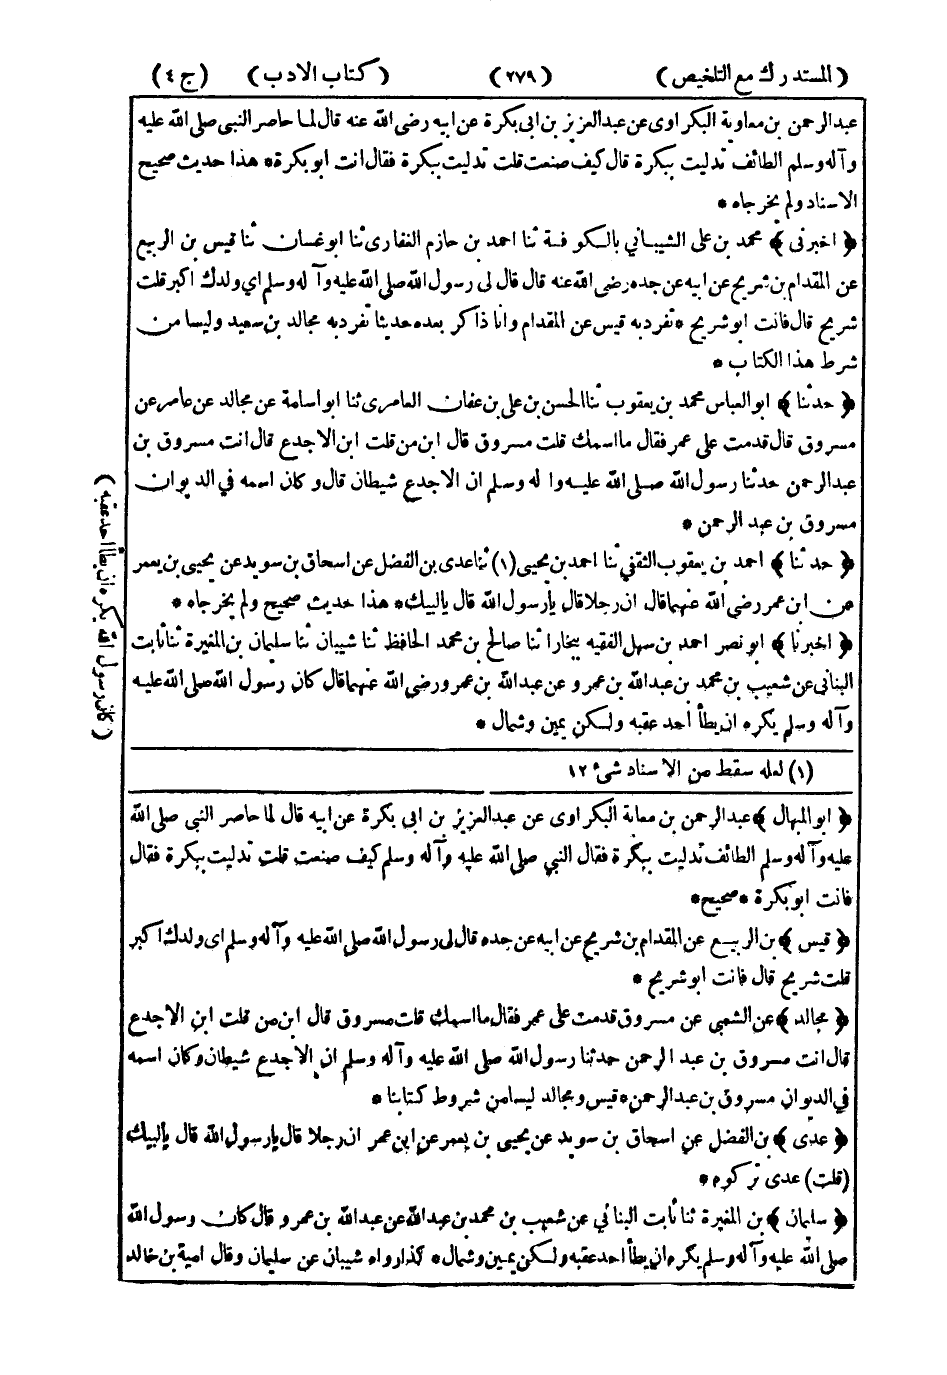 (المستدرك مع التلخيص) (٢٧٩) (كتاب الادب) (ج ٤)
عبدالرحمن بن معاوية البكراوى عن عبدالعزيز بن ابى بكرة عن ابيه رضى الله عنه قال لما حاصر النبى صلى الله عليه
وآله وسلم الطائف تدليت ببكرة قال كيف صنعت قلت تدليت ببكرة فقال انت ابوبكرة * هذا حديث صحيح
الاسناد ولم يخرجاه *
﴿ اخبرنى ﴾ محمد بن على الشيبانى بالكوفة ثنا احمد بن حازم الغفارى ثنا ابوغسان ثنا قيس بن الربيع
عن المقدام بن شريح عن ابيه عن جده رضى الله عنه قال قال لى رسول الله صلى الله عليه وآله وسلم اي ولدك اكبر قلت
شريح قال فانت ابوشريح * تفرد به قيس عن المقدام وانا ذاكر بعده حديثا تفرد به مجالد بن سعيد وليسا من
شرط هذا الكتاب *
﴿ حدثنا ﴾ ابوالعباس محمد بن يعقوب ثنا الحسن بن على بن عفان العامرى ثنا ابواسامة عن مجالد عن عامر عن
مسروق قال قدمت على عمر فقال مااسمك قلت مسروق قال ابن من قلت ابن الاجدع قال انت مسروق بن
عبدالرحمن حدثنا رسول الله صلى الله عليه وآله وسلم ان الاجدع شيطان قال وكان اسمه في الديوان
مسروق بن عبد الرحمن *
﴿ حدثنا ﴾ احمد بن يعقوب الثقفي ثنا احمد بن يحيى (١) ثنا عدى بن الفضل عن اسحاق بن سويد عن يحيى بن يعمر
عن ابن عمر رضى الله عنهما قال ان رجلا قال يارسول الله قال يالبيك * هذا حديث صحيح ولم يخرجاه *
﴿ اخبرنا ﴾ ابونصر احمد بن سهل الفقيه ببخارا ثنا صالح بن محمد الحافظ ثنا شيبان ثنا سليمان بن المغيرة ثنا ثابت
البنانى عن شعيب بن محمد بن عبدالله بن عمرو عن عبدالله بن عمرو رضى الله عنهما قال كان رسول الله صلى الله عليه
وآله وسلم يكره ان يطأ أحد عقبه ولكن يمين وشمال *
(كان رسول الله يكره ان يطأ احد عقبه)
(١) لعله سقط من الاسناد شىء ١٢
﴿ ابوالمنهال ﴾ عبدالرحمن بن معاية البكراوى عن عبدالعزيز بن ابى بكرة عن ابيه قال لما حاصر النبى صلى الله
عليه وآله وسلم الطائف تدليت ببكرة فقال النبي صلى الله عليه وآله وسلم كيف صنعت قلت تدليت ببكرة فقال
فانت ابوبكرة * صحيح *
﴿ قيس ﴾ بن الربيع عن المقدام بن شريح عن ابيه عن جده قال لى رسول الله صلى الله عليه وآله وسلم اى ولدك اكبر
قلت شريح قال فانت ابوشريح *
﴿ مجالد ﴾ عن الشعبي عن مسروق قدمت على عمر فقال مااسمك قلت مسروق قال ابن من قلت ابن الاجدع
قال انت مسروق بن عبد الرحمن حدثنا رسول الله صلى الله عليه وآله وسلم ان الاجدع شيطان وكان اسمه
في الديوان مسروق بن عبدالرحمن * قيس ومجالد ليسا من شروط كتابنا *
﴿ عدى ﴾ بن الفضل عن اسحاق بن سويد عن يحيى بن يعمر عن ابن عمر ان رجلا قال يارسول الله قال يالبيك
(قلت) عدى تركوه *
﴿ سليمان ﴾ بن المغيرة ثنا ثابت البنانى عن شعيب بن محمد بن عبدالله عن عبدالله بن عمرو قال كان رسول الله
صلى الله عليه وآله وسلم يكره ان يطأ احد عقبه ولكن يمين وشمال * كذا رواه شيبان عن سليمان وقال امية بن خالد